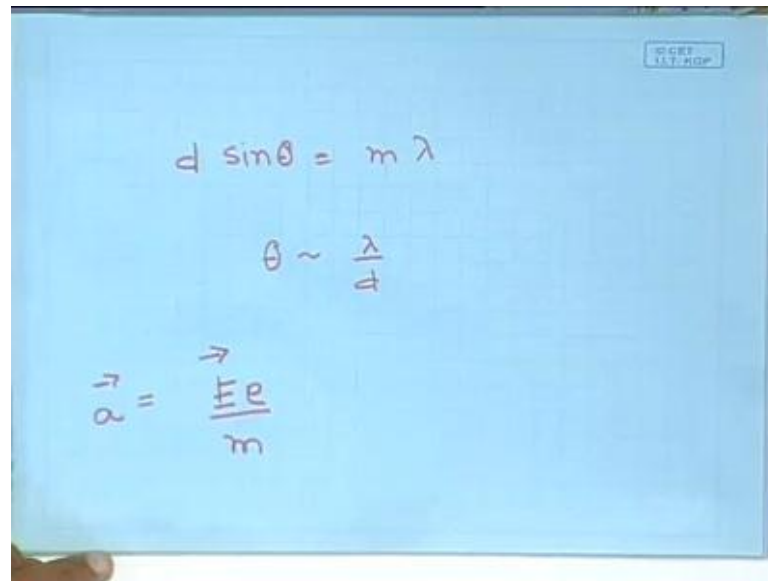 © CET
I.I.T. KGP
d sinθ = m λ
θ ~ λ/d
a⃗ = E⃗e/m